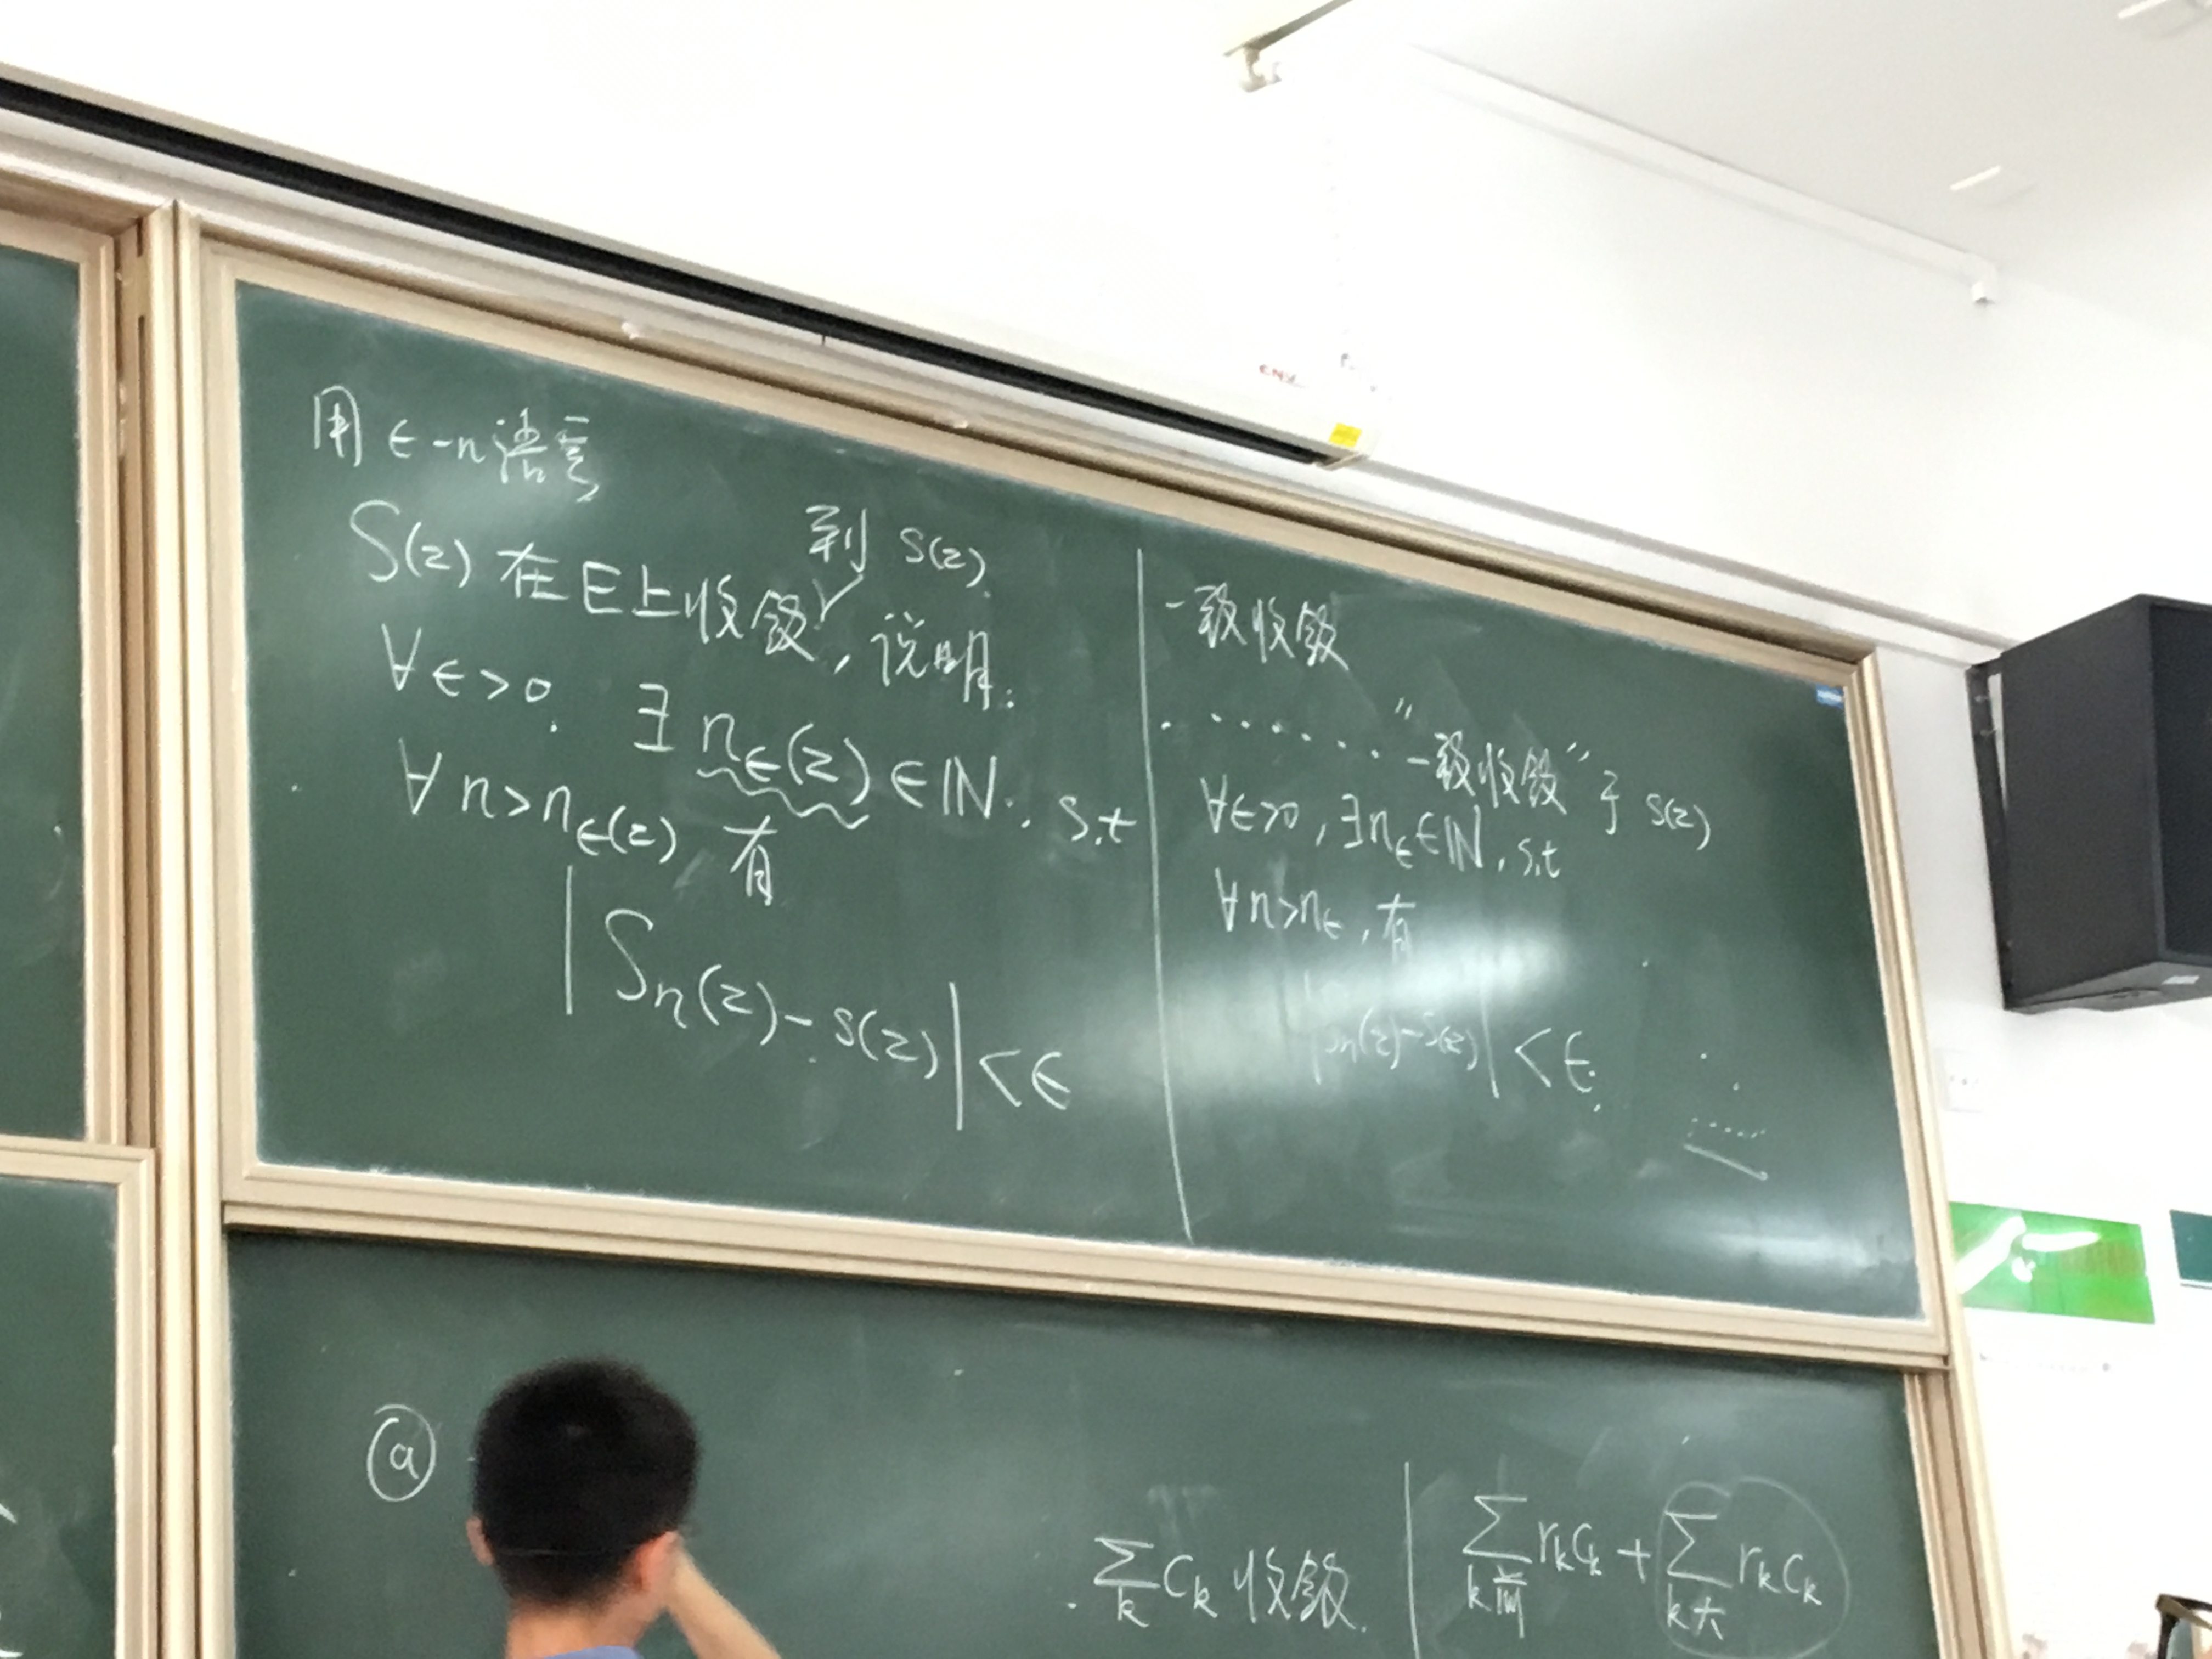 用 ∈-n 语言
S(z) 在E上收敛到 S(z), 说明:
∀∈>0. ∃ n∈(z) ∈ IN. s.t
∀n>n∈(z) 有
|Sn(z)-S(z)|<∈
一致收敛
. . . . . . . "一致收敛" 于 S(z)
∀∈>0, ∃n∈∈IN, s.t
∀n>n∈, 有
|Sn(z)-S(z)|<∈.
ⓐ
∑k Ck 收敛.
∑k前 rkCk + ∑k大 rkCk